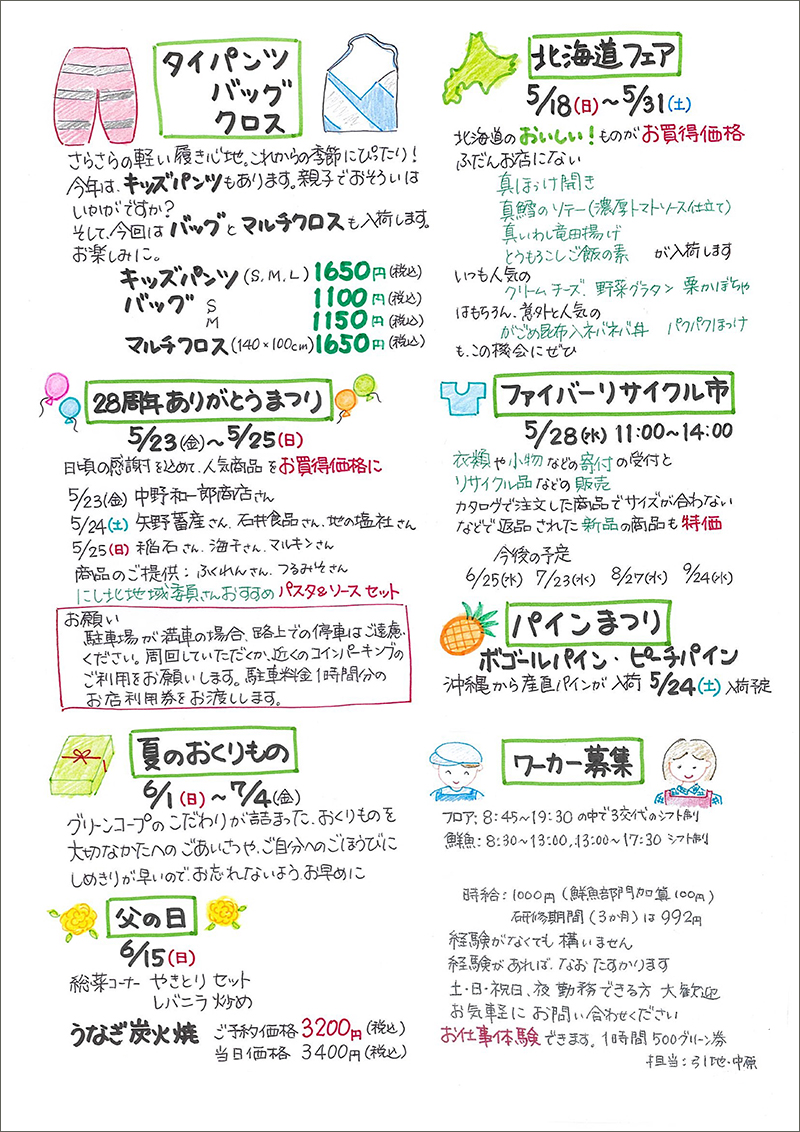 タイパンツ
バッグ
クロス
さらさらの軽い履き心地。これからの季節にぴったり!
今年は、キッズパンツもあります。親子でおそろいは
いかがですか?
そして、今回はバッグとマルチクロスも入荷します。
お楽しみに。
キッズパンツ(S,M,L) 1650円(税込)
バッグ S 1100円(税込)
M 1150円(税込)
マルチクロス(140×100cm) 1650円(税込)
28周年ありがとうまつり
5/23(金)~5/25(日)
日頃の感謝を込めて、人気商品をお買得価格に
5/23(金) 中野和一郎商店さん
5/24(土) 矢野畜産さん、石井食品さん、地の塩社さん
5/25(日) 稲石さん、海千さん、マルキンさん
商品のご提供:ふくれんさん、つるみそさん
にし北地域委員さんおすすめ パスタ&ソースセット
お願い
駐車場が満車の場合、路上での停車はご遠慮
ください。周回していただくか、近くのコインパーキングの
ご利用をお願いします。駐車料金1時間分の
お店利用券をお渡しします。
夏のおくりもの
6/1(日)~7/4(金)
グリーンコープのこだわりが詰まった、おくりものを
大切なかたへのごあいさつや、ご自分へのごほうびに
しめきりが早いので、お忘れないよう、お早めに
父の日
6/15(日)
総菜コーナー やきとりセット
レバニラ炒め
うなぎ炭火焼 ご予約価格 3200円(税込)
当日価格 3400円(税込)
北海道フェア
5/18(日)~5/31(土)
北海道のおいしい!ものがお買得価格
ふだんお店にない
真ほっけ開き
真鱈のソテー(濃厚トマトソース仕立て)
真いわし竜田揚げ
とうもろこしご飯の素 が入荷します
いつも人気の
クリームチーズ、野菜グラタン 栗かぼちゃ
はもちろん、意外と人気の
がごめ昆布入ネバネバ丼 パクパクほっけ
も、この機会にぜひ
ファイバーリサイクル市
5/28(水) 11:00~14:00
衣類や小物などの寄付の受付と
リサイクル品などの販売
カタログで注文した商品でサイズが合わない
などで返品された新品の商品も特価
今後の予定
6/25(水) 7/23(水) 8/27(水) 9/24(水)
パインまつり
ボゴールパイン・ピーチパイン
沖縄から産直パインが入荷 5/24(土)入荷予定
ワーカー募集
フロア:8:45~19:30の中で3交代のシフト制
鮮魚:8:30~13:00,13:00~17:30 シフト制
時給:1000円(鮮魚部門加算100円)
研修期間(3か月)は992円
経験がなくても構いません
経験があれば、なおたすかります
土・日・祝日、夜 勤務できる方 大歓迎
お気軽にお問い合わせください
お仕事体験できます。1時間500グリーン券
担当:引地・中原